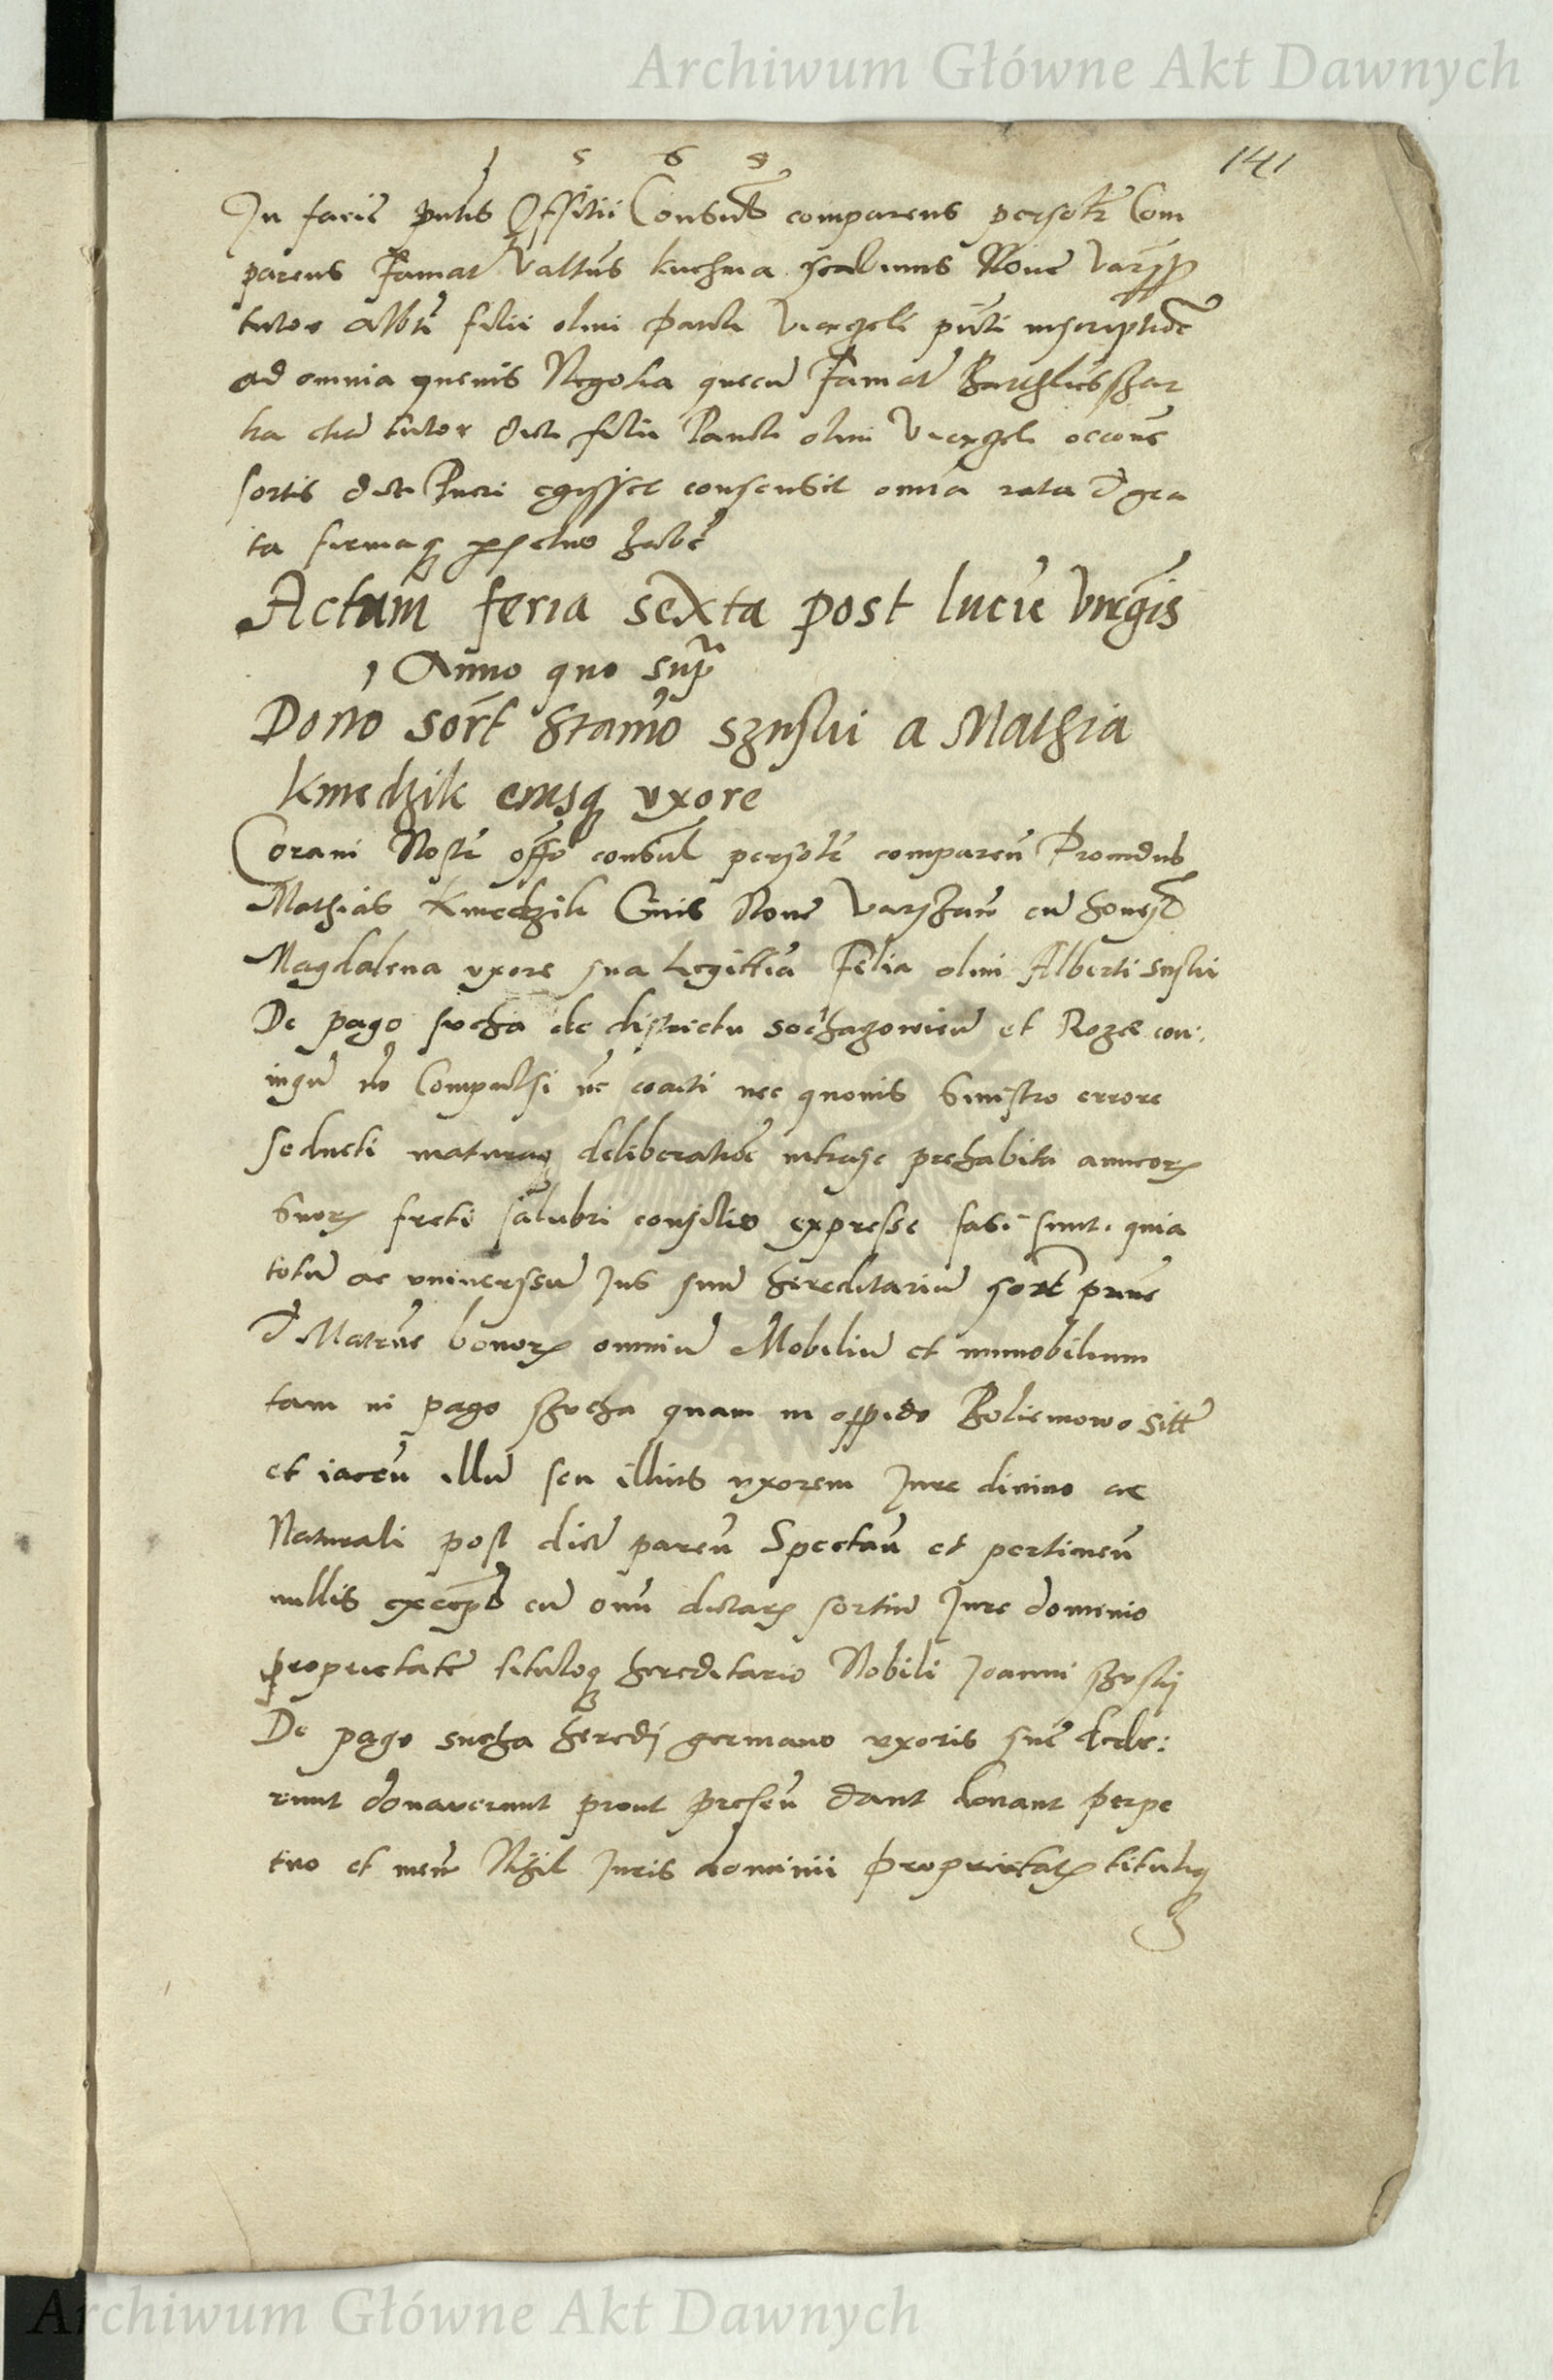 Archiwum Główne Akt Dawnych
1 5 6 8
141
In facie pntis Offitii Consuls comparens persolr Com
parens Famat Valtus kuchma scabinus Noue Varss
tutor Albti filii olim Pauli Viergeli pnti inscriptioe
ad omnia quevis Negotia quecu Famat
ka eta tutor dicti filii Pauli olim Viergeli occone
sortis dicti Pueri egisset consensit omia rata et gra
ta firmaq habe
Actum feria sexta post lucie Virgis
Anno quo supra
Dono sort Stanio szuski a Mathia
kmedzik eiusq vxore
Coram Nostr offo consul persolr comparen Prouidus
Mathias Kmedzik Civis Noue Varschavi cu honesta
Magdalena vxore sua legittia Felia olim Alberti suski
De pago sucha de districtu sochazowien et Rozae con:
iugu no Compulsi nec coacti nec quouis Sinistro errore
seducti maturaq deliberatioe intrase prehabita amicor
Suor freti salubri consilio expresse fassi sunt. quia
totu ac vniuerssu Jus suu hereditariu sort prne
et Matrne bonor omniu Mobiliu et immobilium
tam in pago szucha quam in oppido Boliemowo sitt
et iacen illu seu illius vxorem Jure diuino ac
Naturali post dict paren Spectan et pertinen
nullis exceptis cu omi dictar sortiu Jure dominio
proprietate tituloq hereditario Nobili Joanni szuski
De pago sucha heredi germano vxoris sue dede:
runt donaverunt prout presen dant donant perpe
tuo et in eu Nihil Juris dominii proprietatis tituliq
Archiwum Główne Akt Dawnych